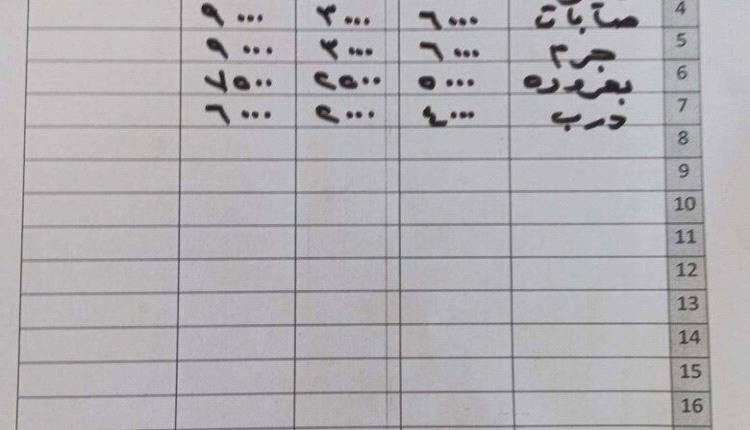 4 ٦٠٠٠ ٣٠٠٠ ٩٠٠٠
5 جرم ٦٠٠٠ ٣٠٠٠ ٩٠٠٠
6 ٥٠٠٠ ٢٥٠٠ ٧٥٠٠
7 درب ٤٠٠٠ ٢٠٠٠ ٦٠٠٠
8
9
10
11
12
13
14
15
16